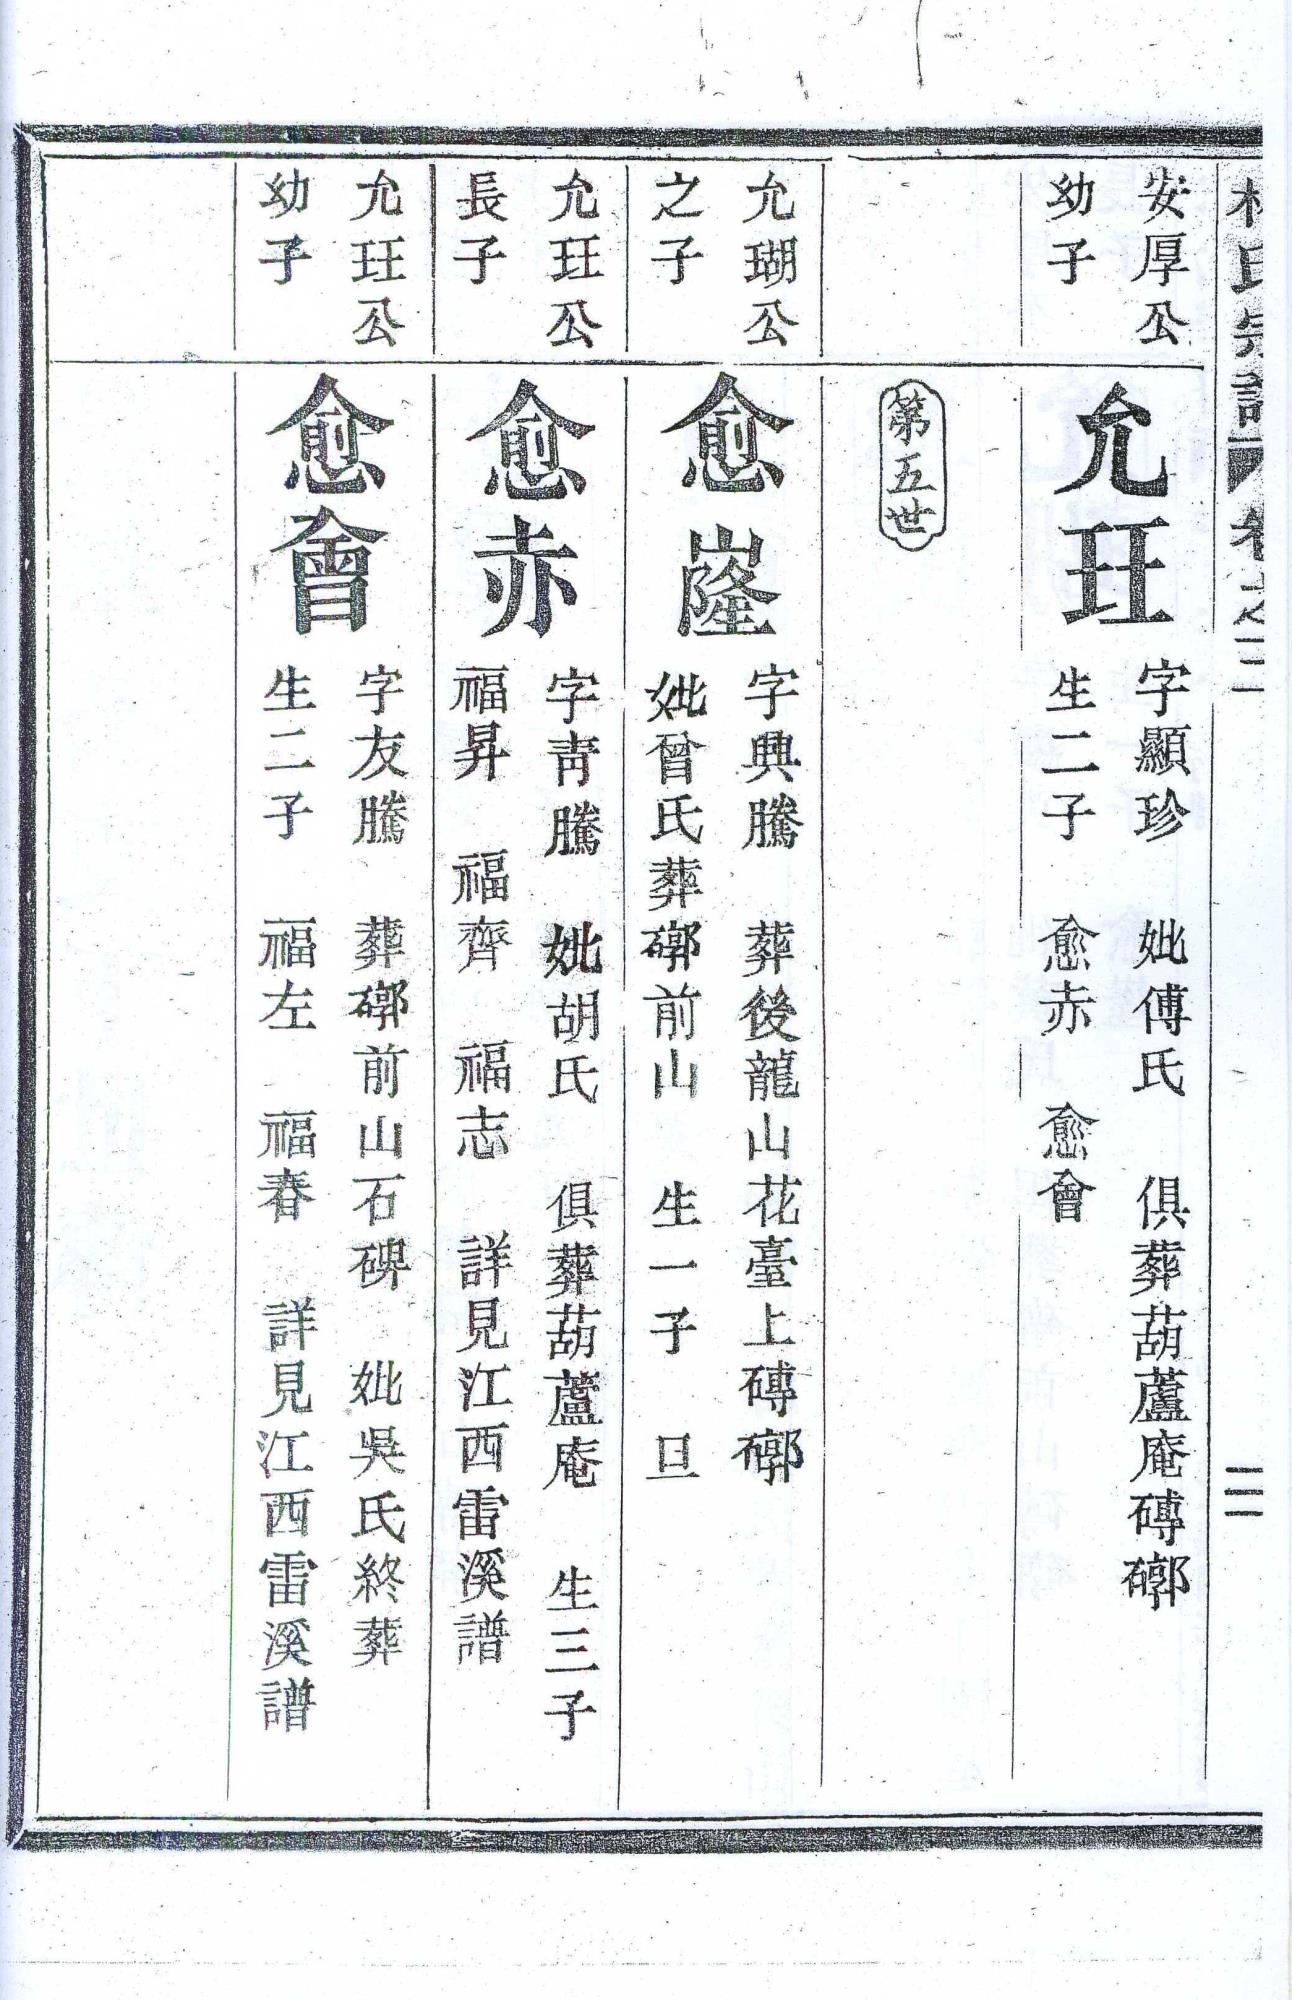 氏宗譜 卷之二
三
安厚公
幼子
允玨
字顯珍 妣傅氏 俱葬葫蘆庵磚𥕏
生二子 愈赤 愈會
第五世
允瑚公
之子
愈嶐
字興騰 葬後龍山花臺上磚𥕏
妣曾氏葬𥕏前山 生一子 旦
允玨公
長子
愈赤
字靑騰 妣胡氏 俱葬葫蘆庵 生三子
福昇 福齊 福志 詳見江西雷溪譜
允玨公
幼子
愈會
字友騰 葬𥕏前山石碑 妣吳氏終葬
生二子 福左 福春 詳見江西雷溪譜